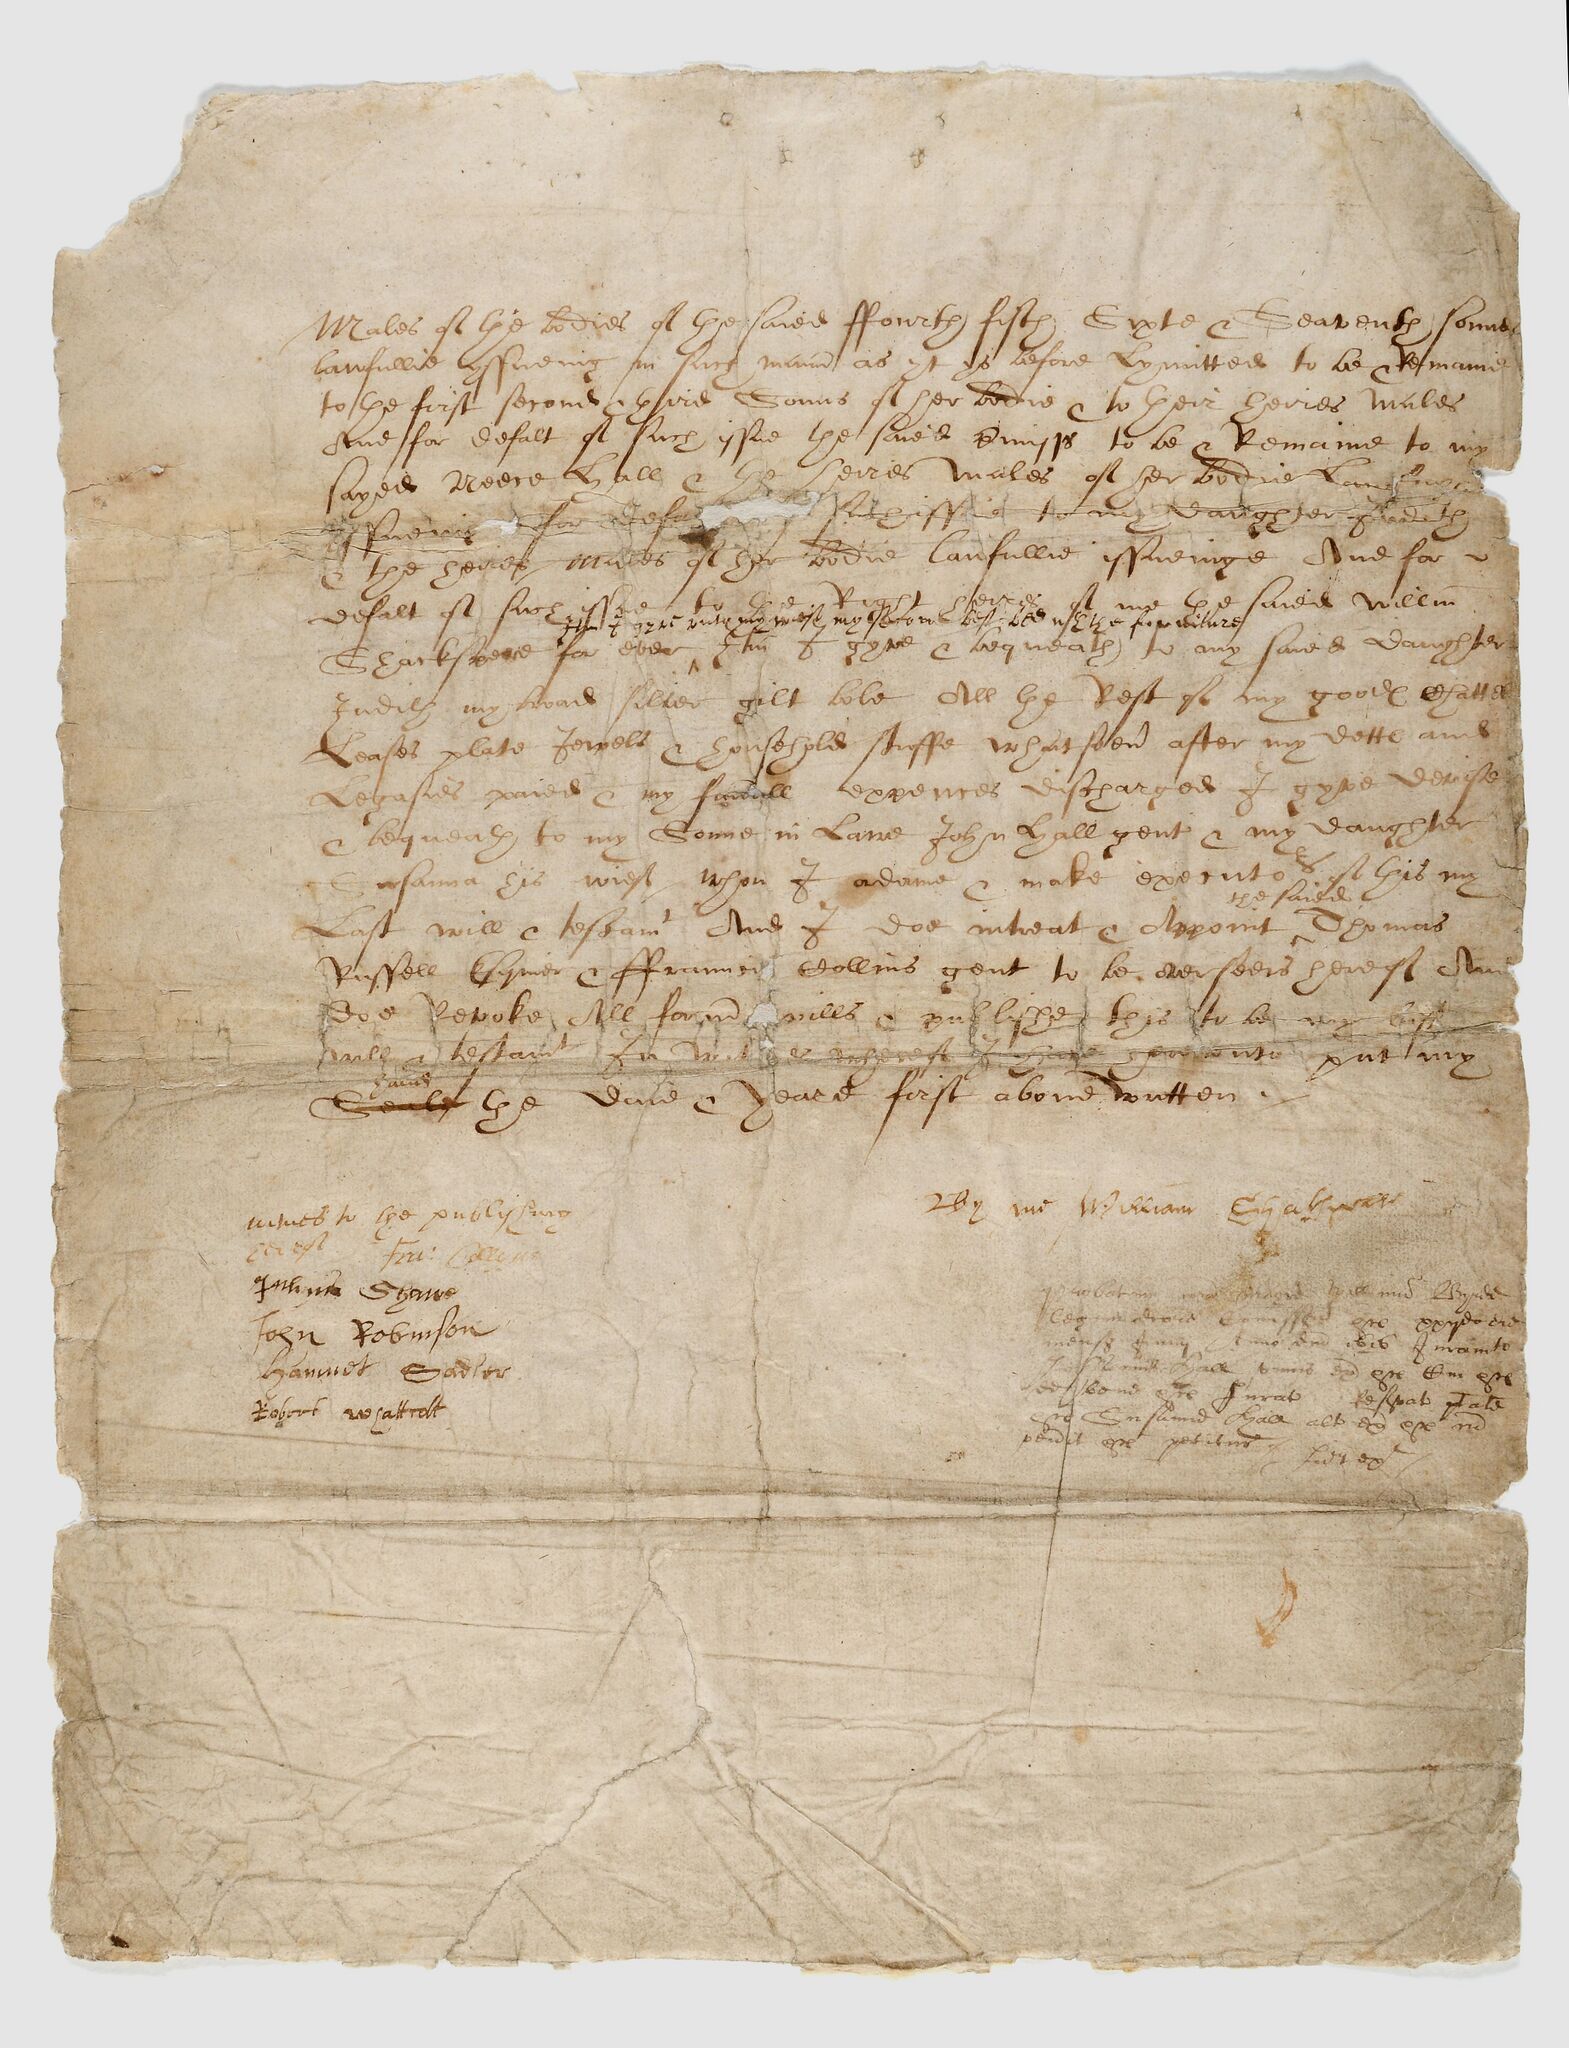 Males of the bodies of the saied ffourth fifth Sixte & Seaventh sonnes
lawfullie yssueing in such mann as yt ys before Lymitted to be & Remaine
to the first second & third Sonns of her bodie & to their heires Males
And for defalt of such issue the saied pmisss to be & Remaine to my
sayed Neece Hall & the heires Males of her bodie Lawfully
yssueing for defa such issue to my daughter Judith
& the heires Males of her bodie lawfullie issueinge And for
defalt of such issue to the Right heires of me the saied Willm
Itm I gyve unto my wief my second best bed wth the furniture
Shackspeare for ever Itm I gyve & bequeath to my saied daughter
Judith my broad silver gilt bole All the Rest of my goods Chattels
Leases plate Jewels & household stuffe whatsoev after my dettes and
Legasies paied & my funerall expences discharged I gyve devise
& bequeath to my Sonne in Lawe John Hall gent & my daughter
Susanna his wief whom I ordaine & make executors of this my
the saied
Last will & testamt And I doe intreat & Appoint Thomas
Russell Esquier & ffrauncis Collins gent to be overseers hereof And
doe Revoke All formr wills & publishe this to be my last
will & testamt In witnes whereof I have hereunto put my
hand
Seale the daie & Yeare first above written
witnes to the publishing
hereof Fra: Collyns
Julyus Shawe
John Robinson
Hamnet Sadler
Robert Whattcott
By me William Shakspeare
Probatum Willmo Byrde
legum doctore Comissar &c xxijdo die
mensis Junij Anno dni 1616 Juramto
Johannis Hall unius ex &c Cui &c
de bene &c Jurat Resvat ptate
&c Susanne Hall alt ex &c cu
venit &c petitur
Inv ext